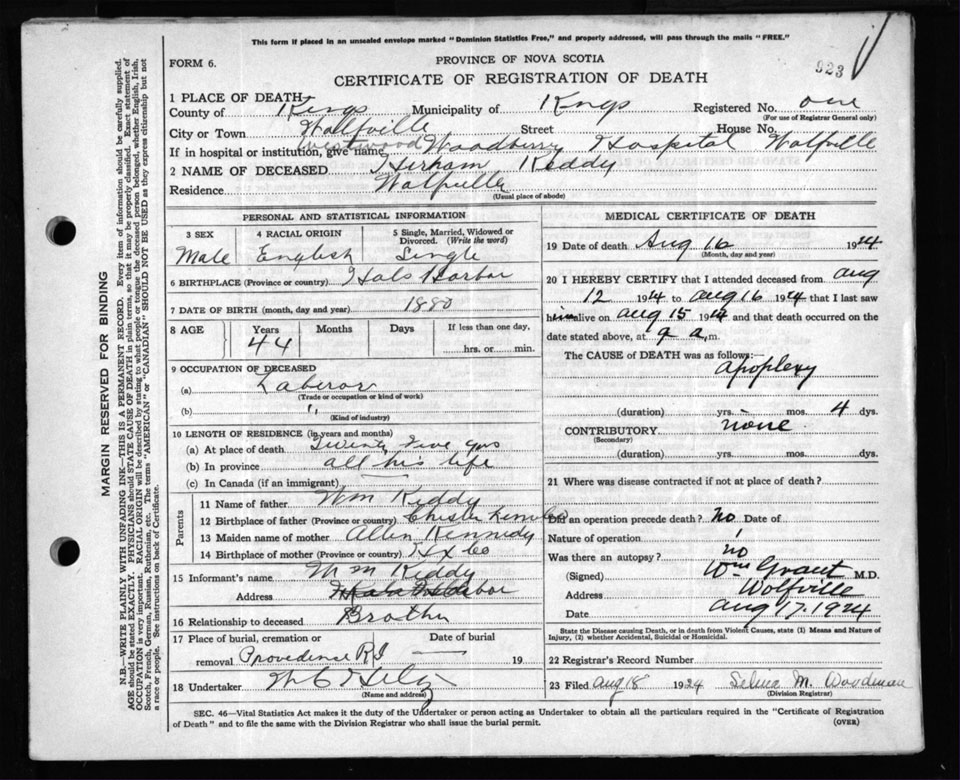 This form if placed in an unsealed envelope marked "Dominion Statistics Free," and properly addressed, will pass through the mails "FREE."
923
FORM 6.
PROVINCE OF NOVA SCOTIA
CERTIFICATE OF REGISTRATION OF DEATH
1 PLACE OF DEATH—
County of Kings Municipality of Kings Registered No. one
(For use of Registrar General only)
City or Town Wolfville Street House No.
If in hospital or institution, give name Westwood Woodberry Hospital Wolfville
2 NAME OF DECEASED Hirham Keddy
Residence Wolfville
(Usual place of abode)
PERSONAL AND STATISTICAL INFORMATION
3 SEX 4 RACIAL ORIGIN 5 Single, Married, Widowed or Divorced. (Write the word)
Male English Single
6 BIRTHPLACE (Province or country) Hals Harbor
7 DATE OF BIRTH (month, day and year) 1880
8 AGE Years Months Days If less than one day,
44 hrs. or min.
9 OCCUPATION OF DECEASED
(a) Laberor
(Trade or occupation or kind of work)
(b) "
(Kind of industry)
10 LENGTH OF RESIDENCE (in years and months)
(a) At place of death Twenty five yrs
(b) In province all his life
(c) In Canada (if an immigrant)
Parents
11 Name of father Wm Keddy
12 Birthplace of father (Province or country) Chester
13 Maiden name of mother Allen Kennedy
14 Birthplace of mother (Province or country) Hx Co
15 Informant's name Wm Keddy
Address Hals Harbor
16 Relationship to deceased Brother
17 Place of burial, cremation or Date of burial
removal Providence RI — 19
18 Undertaker
(Name and address)
MEDICAL CERTIFICATE OF DEATH
19 Date of death Aug 16 1924
(Month, day and year)
20 I HEREBY CERTIFY that I attended deceased from aug
12 1924 to aug 16 1924 that I last saw
him alive on aug 15 1924 and that death occurred on
date stated above, at 9 a.m.
The CAUSE OF DEATH was as follows:
apoplexy
(duration) yrs. — mos. 4 dys.
CONTRIBUTORY none
(Secondary)
(duration) yrs. mos. dys.
21 Where was disease contracted if not at place of death?
Did an operation precede death? no Date of
Nature of operation
Was there an autopsy? no
(Signed) Wm Grant M.D.
Address Wolfville
Date aug 17. 1924
State the Disease causing Death, or in death from Violent Causes, state (1) Means and Nature of Injury, (2) whether Accidental, Suicidal or Homicidal.
22 Registrar's Record Number
23 Filed aug 18 1924 Selina M. Woodman
(Division Registrar)
SEC. 46—Vital Statistics Act makes it the duty of the Undertaker or person acting as Undertaker to obtain all the particulars required in the "Certificate of Registration
of Death" and to file the same with the Division Registrar who shall issue the burial permit. (OVER)
MARGIN RESERVED FOR BINDING
N.B.—WRITE PLAINLY WITH UNFADING INK—THIS IS A PERMANENT RECORD. Every item of information should be carefully supplied.
AGE should be stated EXACTLY. PHYSICIANS should STATE CAUSE OF DEATH in plain terms, so that it may be properly classified. Exact statement of
OCCUPATION is very important. RACIAL ORIGIN will be described by stating to what people or tongue the deceased person belonged, whether English, Irish,
Scotch, French, German, Russian, Ruthenian, etc. The terms "AMERICAN" or "CANADIAN" SHOULD NOT BE USED as they express citizenship but not
a race or people. See instructions on back of Certificate.